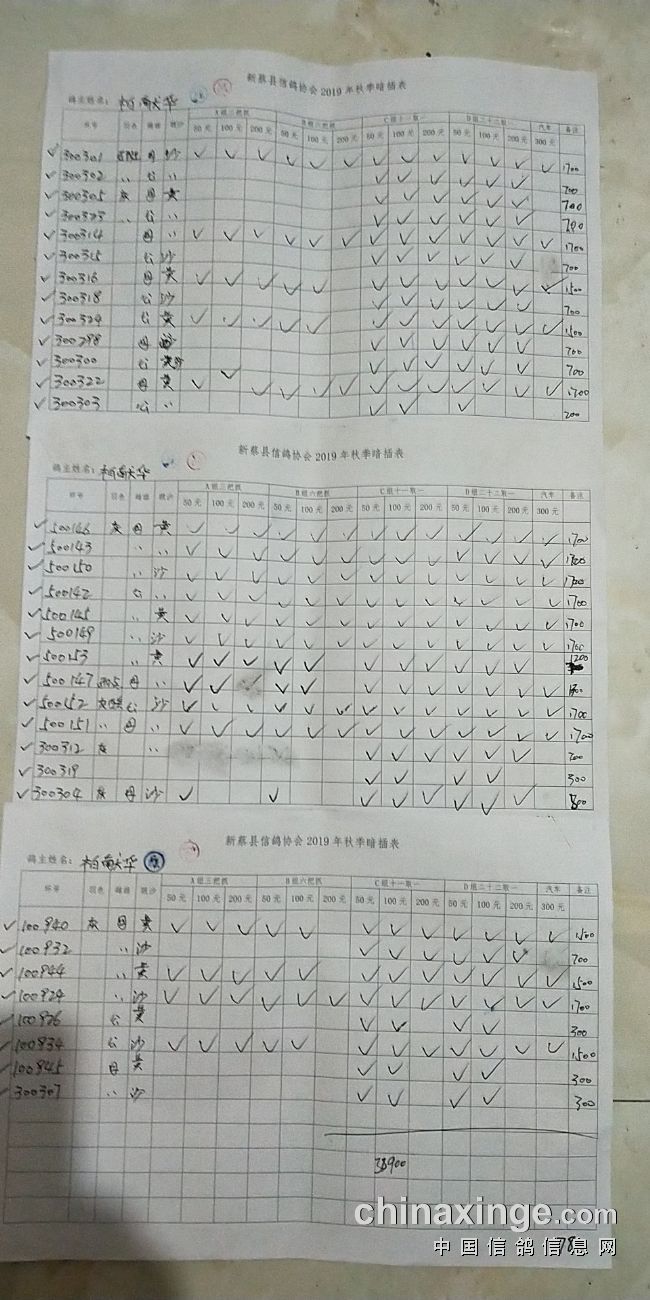 新蔡县信鸽协会2019年秋季暗插表
鸽主姓名：柏献华
环号 羽色 雌雄 眼沙 A组三把抓 B组六把抓 C组十一取一 D组二十二取一 汽车 备注
50元 100元 200元 50元 100元 200元 50元 100元 200元 50元 100元 200元 300元
✓300301 母 沙 ✓ ✓ ✓ ✓ ✓ ✓ ✓ ✓ ✓ ✓ ✓ ✓ ✓ 1700
✓300302 〃 公 〃 ✓ ✓ ✓ ✓ ✓ ✓ 700
✓300305 灰 母 黄 ✓ ✓ ✓ ✓ ✓ ✓ 700
✓300323 〃 公 〃 ✓ ✓ ✓ ✓ ✓ ✓ 700
✓300314 母 〃 ✓ ✓ ✓ ✓ ✓ ✓ ✓ ✓ ✓ ✓ ✓ ✓ ✓ 1700
✓300315 公 沙 ✓ ✓ ✓ ✓ ✓ ✓ 700
✓300316 母 黄 ✓ ✓ ✓ ✓ ✓ ✓ ✓ ✓ ✓ ✓ ✓ ✓ 1500
✓300318 公 沙 ✓ ✓ ✓ ✓ ✓ ✓ 700
✓300324 公 黄 ✓ ✓ ✓ ✓ ✓ ✓ ✓ ✓ ✓ ✓ ✓ ✓ 1500
✓300298 母 沙 ✓ ✓ ✓ ✓ ✓ ✓ 700
✓300300 公 黄沙 ✓ ✓ ✓ ✓ ✓ ✓ 700
✓300322 母 黄 ✓ ✓ ✓ ✓ ✓ ✓ ✓ ✓ ✓ ✓ ✓ ✓ ✓ 1700
✓300303 公 〃 ✓ ✓ ✓ 200
新蔡县信鸽协会2019年秋季暗插表
鸽主姓名：柏献华
环号 羽色 雌雄 眼沙 A组三把抓 B组六把抓 C组十一取一 D组二十二取一 汽车 备注
50元 100元 200元 50元 100元 200元 50元 100元 200元 50元 100元 200元 300元
✓500146 灰 母 黄 ✓ ✓ ✓ ✓ ✓ ✓ ✓ ✓ ✓ ✓ ✓ ✓ ✓ 1700
✓500143 〃 〃 ✓ ✓ ✓ ✓ ✓ ✓ ✓ ✓ ✓ ✓ ✓ ✓ ✓ 1700
✓500150 〃 沙 ✓ ✓ ✓ ✓ ✓ ✓ ✓ ✓ ✓ ✓ ✓ ✓ ✓ 1700
✓500142 公 〃 ✓ ✓ ✓ ✓ ✓ ✓ ✓ ✓ ✓ ✓ ✓ ✓ ✓ 1700
✓500145 〃 黄 ✓ ✓ ✓ ✓ ✓ ✓ ✓ ✓ ✓ ✓ ✓ ✓ ✓ 1700
✓500149 〃 沙 ✓ ✓ ✓ ✓ ✓ ✓ ✓ ✓ ✓ ✓ ✓ ✓ ✓ 1700
✓500153 〃 黄 ✓ ✓ ✓ ✓ ✓ ✓ ✓ ✓ ✓ ✓ ✓ 1200
✓500147 母 〃 ✓ ✓ ✓ ✓ ✓ ✓ ✓ ✓ ✓ ✓ ✓ ✓
✓500152 公 沙 ✓ ✓ ✓ ✓ ✓ ✓ ✓ ✓ ✓ ✓ ✓ ✓ ✓ 1700
✓500151 〃 母 〃 ✓ ✓ ✓ ✓ ✓ ✓ ✓ ✓ ✓ ✓ ✓ ✓ ✓ 1700
✓300312 灰 〃 ✓ ✓ ✓ ✓ ✓ ✓ 700
✓300319 ✓ ✓ ✓ ✓ 300
✓300304 灰 母 沙 ✓ ✓ ✓ ✓ ✓ ✓ ✓ ✓ 800
新蔡县信鸽协会2019年秋季暗插表
鸽主姓名：柏献华
环号 羽色 雌雄 眼沙 A组三把抓 B组六把抓 C组十一取一 D组二十二取一 汽车 备注
50元 100元 200元 50元 100元 200元 50元 100元 200元 50元 100元 200元 300元
✓100940 灰 母 黄 ✓ ✓ ✓ ✓ ✓ ✓ ✓ ✓ ✓ ✓ ✓ ✓ 1500
✓100932 〃 沙 ✓ ✓ ✓ ✓ ✓ ✓ 700
✓100944 〃 黄 ✓ ✓ ✓ ✓ ✓ ✓ ✓ ✓ ✓ ✓ ✓ ✓ 1500
✓100924 〃 沙 ✓ ✓ ✓ ✓ ✓ ✓ ✓ ✓ ✓ ✓ ✓ ✓ ✓ 1700
✓100926 公 黄 ✓ ✓ ✓ ✓ 300
✓100934 公 沙 ✓ ✓ ✓ ✓ ✓ ✓ ✓ ✓ ✓ ✓ ✓ ✓ 1500
✓100945 母 黄 ✓ ✓ ✓ ✓ 300
✓300307 〃 沙 ✓ ✓ ✓ ✓ 300
38900
chinaxinge.com
中国信鸽信息网
78